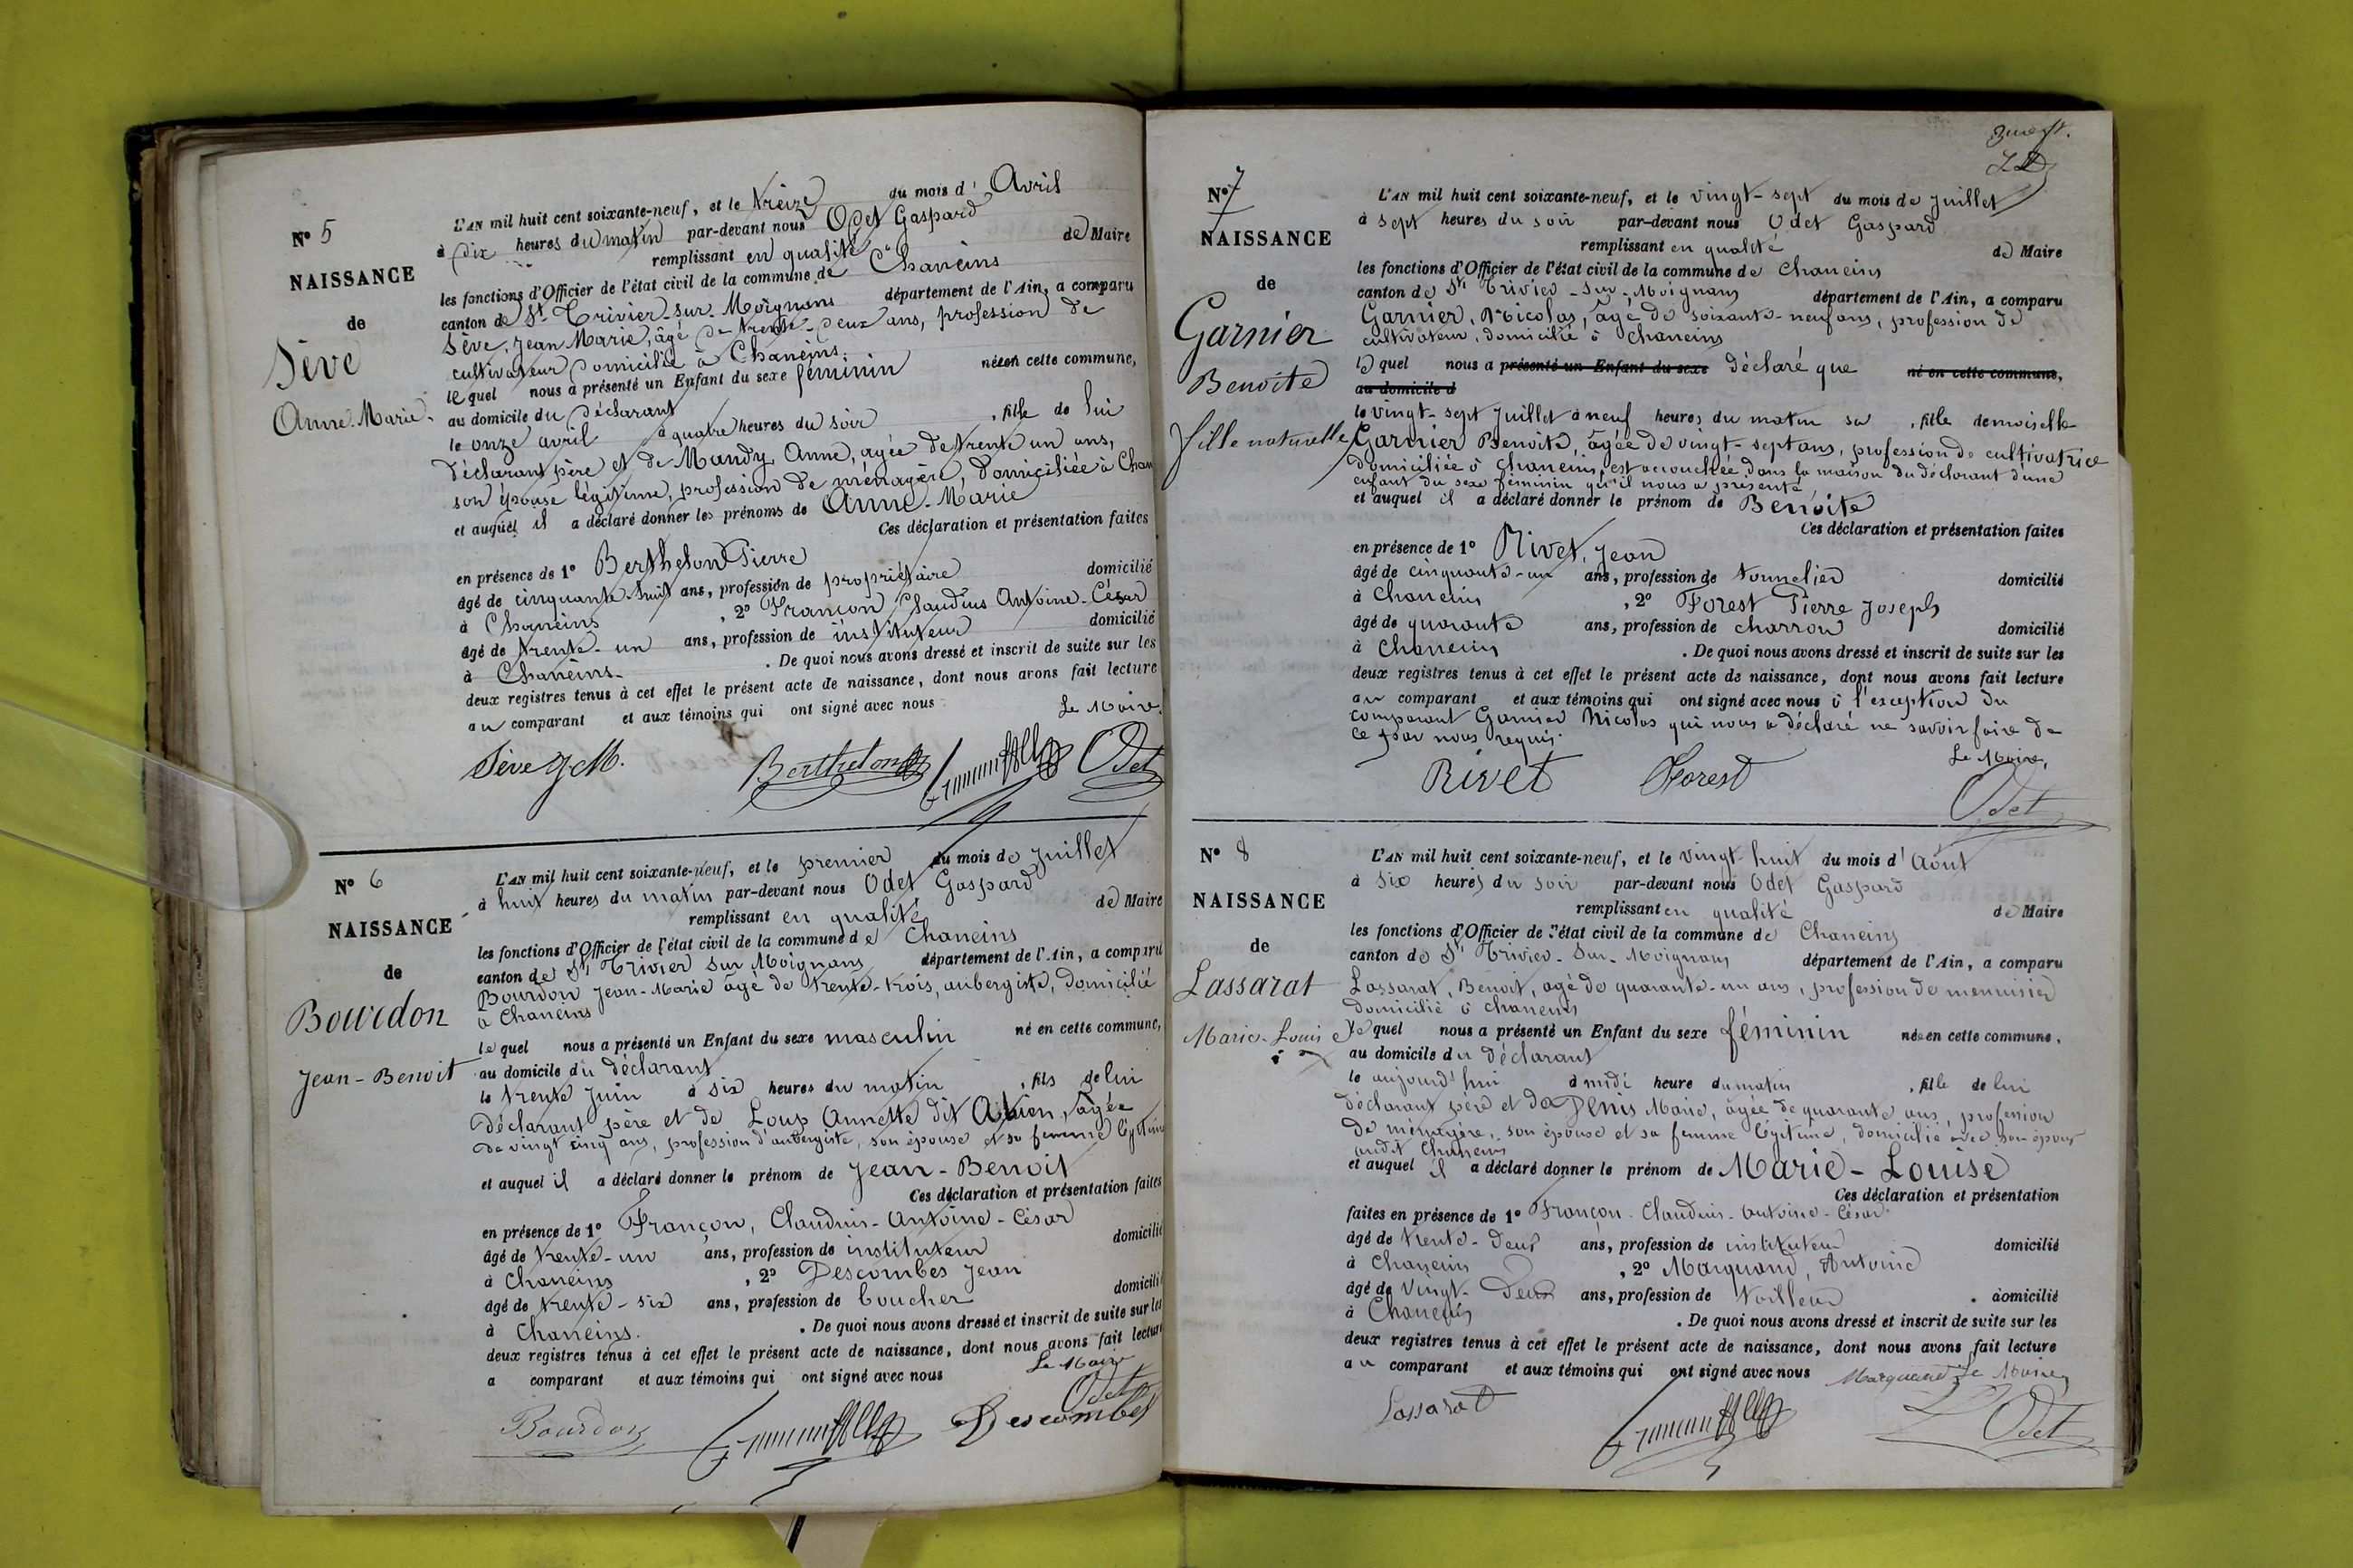 N° 5
NAISSANCE
de
Sève
Anne-Marie
L'AN mil huit cent soixante-neuf, et le treize du mois d'Avril
à dix heures du matin par-devant nous Odet Gaspard
remplissant en qualité de Maire
les fonctions d'Officier de l'état civil de la commune de Chaneins
canton de St Trivier-sur-Moignans département de l'Ain, a comparu
Sève, Jean Marie, âgé de trente-deux ans, profession de
cultivateur domicilié à Chaneins,
lequel nous a présenté un Enfant du sexe féminin née en cette commune,
au domicile du déclarant
le onze avril à quatre heures du soir, fille de lui
déclarant père et de Mandy Anne, agée de trente un ans,
son épouse légitime, profession de ménagère, domiciliée à Chan
et auquel il a déclaré donner les prénoms de Anne-Marie
Ces déclaration et présentation faites
en présence de 1° Berthelon Pierre
âgé de cinquante-huit ans, profession de propriétaire domicilié
à Chaneins, 2° Françon Claudius Antoine-César
âgé de trente-un ans, profession de instituteur domicilié
à Chaneins. De quoi nous avons dressé et inscrit de suite sur les
deux registres tenus à cet effet le présent acte de naissance, dont nous avons fait lecture
au comparant et aux témoins qui ont signé avec nous
Le Maire,
Sève J M. Berthelon Odet
N° 6
NAISSANCE
de
Bourdon
Jean-Benoit
L'AN mil huit cent soixante-neuf, et le premier du mois de Juillet
à huit heures du matin par-devant nous Odet Gaspard
remplissant en qualité de Maire
les fonctions d'Officier de l'état civil de la commune de Chaneins
canton de St Trivier sur Moignans département de l'Ain, a comparu
Bourdon Jean-Marie âgé de trente-trois, aubergiste, domicilié
à Chaneins
lequel nous a présenté un Enfant du sexe masculin né en cette commune,
au domicile du déclarant
le trente Juin à six heures du matin, fils de lui
déclarant père et de Loup Annette dit agée
de vingt cinq ans, profession d'aubergiste, son épouse et sa femme légitime
et auquel il a déclaré donner le prénom de Jean-Benoit
Ces déclaration et présentation faites
en présence de 1° Françon, Claudius-Antoine-César
âgé de trente-un ans, profession de instituteur domicilié
à Chaneins, 2° Descombes Jean
âgé de trente-six ans, profession de boucher domicilié
à Chaneins. De quoi nous avons dressé et inscrit de suite sur les
deux registres tenus à cet effet le présent acte de naissance, dont nous avons fait lecture
a comparant et aux témoins qui ont signé avec nous
Le Maire
Odet
Bourdon Descombes
N° 7
NAISSANCE
de
Garnier
Benoite
fille naturelle
L'AN mil huit cent soixante-neuf, et le vingt-sept du mois de Juillet
à sept heures du soir par-devant nous Odet Gaspard
remplissant en qualité de Maire
les fonctions d'Officier de l'état civil de la commune de Chaneins
canton de St Trivier-sur-Moignans département de l'Ain, a comparu
Garnier, Nicolas, âgé de soixante-neuf ans, profession de
cultivateur, domicilié à Chaneins
lequel nous a présenté un Enfant du sexe déclaré que né en cette commune,
au domicile d
le vingt-sept Juillet à neuf heures du matin sa, fille demoiselle
Garnier Benoite, âgée de vingt-sept ans, profession de cultivatrice
domiciliée à Chaneins, est accouchée dans la maison du déclarant d'une
enfant du sexe féminin qu'il nous a présenté
et auquel il a déclaré donner le prénom de Benoite
Ces déclaration et présentation faites
en présence de 1° Rivet, Jean
âgé de cinquante-un ans, profession de tonnelier domicilié
à Chaneins, 2° Forest Pierre Joseph
âgé de quarante ans, profession de charron domicilié
à Chaneins. De quoi nous avons dressé et inscrit de suite sur les
deux registres tenus à cet effet le présent acte de naissance, dont nous avons fait lecture
au comparant et aux témoins qui ont signé avec nous à l'exception du
comparant Garnier Nicolas qui nous a déclaré ne savoir faire de
ce par nous requis.
Le Maire,
Rivet Forest Odet
N° 8
NAISSANCE
de
Lassarat
Marie-Louise
L'AN mil huit cent soixante-neuf, et le vingt-huit du mois d'Août
à six heures du soir par-devant nous Odet Gaspard
remplissant en qualité de Maire
les fonctions d'Officier de l'état civil de la commune de Chaneins
canton de St Trivier-sur-Moignans département de l'Ain, a comparu
Lassarat, Benoit, agé de quarante-un ans, profession de menuisier
domicilié à Chaneins
lequel nous a présenté un Enfant du sexe féminin née en cette commune,
au domicile du déclarant
le aujourd'hui à midi heure du matin, fille de lui
déclarant père et de Denis Marie, âgée de quarante ans, profession
de ménagère, son épouse et sa femme légitime, domicilié avec son époux
audit Chaneins
et auquel il a déclaré donner le prénom de Marie-Louise
Ces déclaration et présentation
faites en présence de 1° Françon-Claudius-Antoine-César
âgé de trente-deux ans, profession de instituteur domicilié
à Chaneins, 2° Marquand, Antoine
âgé de vingt-deux ans, profession de tailleur domicilié
à Chaneins. De quoi nous avons dressé et inscrit de suite sur les
deux registres tenus à cet effet le présent acte de naissance, dont nous avons fait lecture
au comparant et aux témoins qui ont signé avec nous
Marquand Le Maire
Lassarat Odet